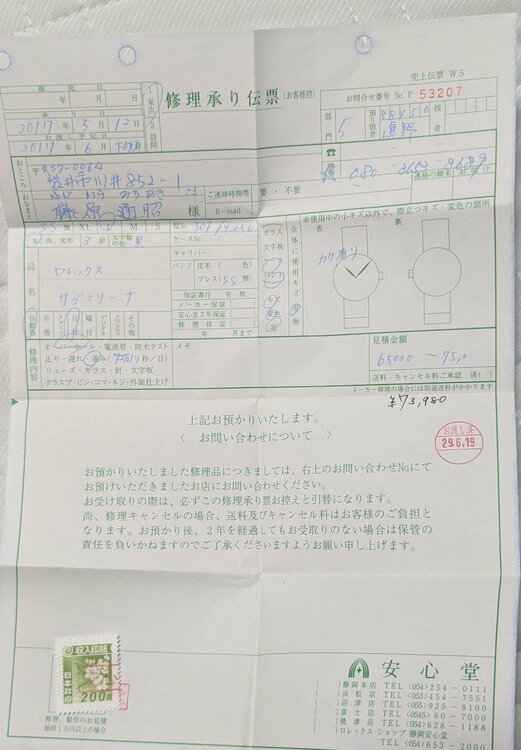 売上伝票 W5
修理承り伝票（お客様控）
お問合せ番号 No P 53207
販売日
年 月 日
1来店
2訪問
承り日
2017年5月12日
お渡し予定日
2017年6月下旬
部門
5
預り扱者
扱者
〒437-0064
おところ
おなまえ
様
ご連絡時間帯
要・不要
E-mail
☎
連絡の顛末
お届け
角、変形 3針 文字盤の色 黒
ケースNo
キャリバー
バンド 皮革（ 色）
ブレス（SS 個）
保証書付 有 無
メーカー保証（ ）
安心堂3年保証（ ）
修理保証（ ）
年 月まで
品名
ロレックス
サブマリーナ
自動巻
手巻
日付
曜日
デジタル
アナログ
その他
ガラス
文字板
ケース
バンド
キズ
変色
全体・使用キズ
※使用中の小キズ以外で、際立つキズ・変色の箇所
表
裏
カケ有り
修理内容
オーバーホール・電池替・防水テスト
止り・遅れ・進み（ 秒／日）
リューズ・ガラス・針・文字板
クラスプ・ピン・コマ・ネジ・外装仕上
メモ
見積金額
65,000 ～
送料・キャンセル料ご承認 済（ ）
メーカー修理の場合には別途送料がかかります
¥73,980
上記お預かりいたします。
〈 お問い合わせについて 〉
お渡し済
29.6.19
お預かりいたしました修理品につきましては、右上のお問い合わせNo.にて
お預けいただきましたお店にお問い合わせください。
お受け取りの際は、必ずこの修理承り票お控えと引替になります。
尚、修理キャンセルの場合、送料及びキャンセル料はお客様のご負担と
なります。お預かり後、2年を経過してもお受取りのない場合は保管の
責任を負いかねますのでご了承くださいますようお願い申し上げます。
収入印紙
日本政府
200円
修理、製作のお見積
価格1万円以上の場合
安心堂
( )静岡本店 TEL (054)254－0111
( )浜松店 TEL (053)454－7551
( )沼津店 TEL (055)925－8100
( )富士店 TEL (0545)60－7000
( )焼津店 TEL (054)628－1188
( )ロレックス ショップ 静岡安心堂
TEL (054)653－2000